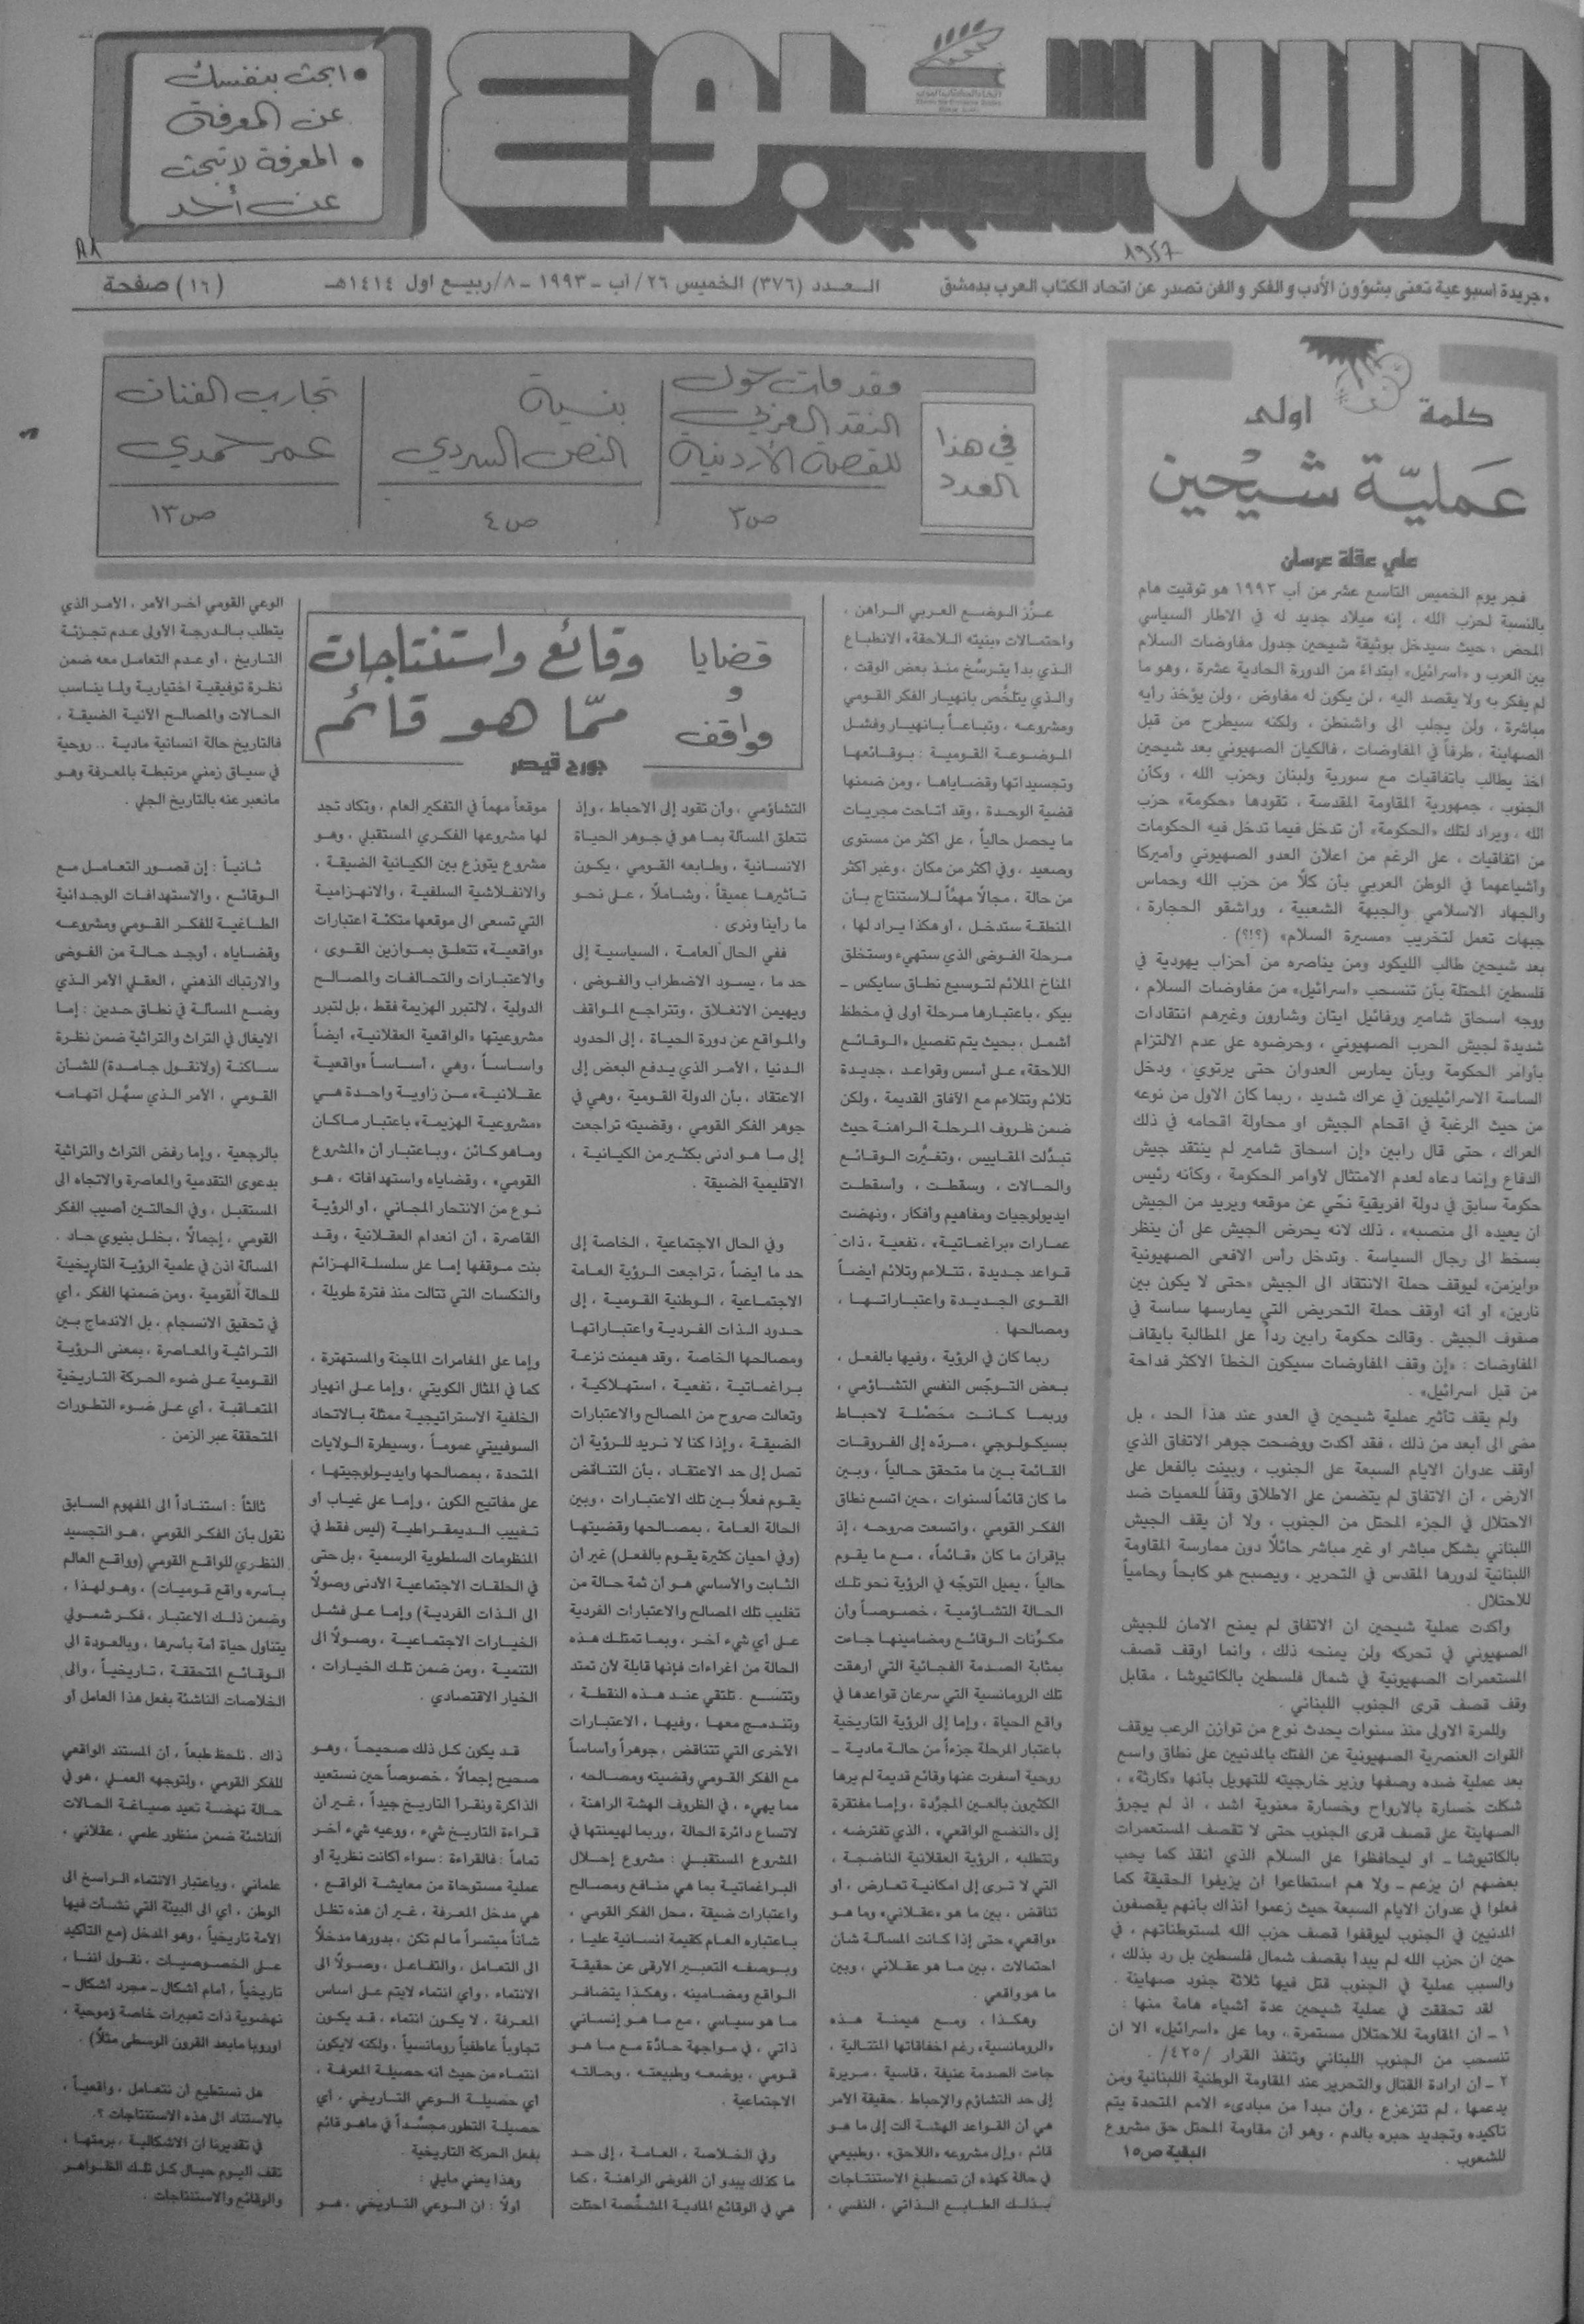 الأسبوع
• ابحث بنفسك
عن المعرفة
• المعرفة لا تبحث
عن أحد
٨٨
١٩٥٧
جريدة أسبوعية تعنى بشؤون الأدب والفكر والفن تصدر عن اتحاد الكتاب العرب بدمشق
العدد (٣٧٦) الخميس ٢٦/آب - ١٩٩٣ - ٨/ربيع اول ١٤١٤هـ
(١٦) صفحة
في هذا
العدد
مقدمات حول
النقد العربي
للقصة الأردنية
ص٣
بنية
النص السردي
ص٤
تجارب الفنان
عمر حمدي
ص١٣
كلمة أولى
عملية شيحين
علي عقلة عرسان
فجر يوم الخميس التاسع عشر من آب ١٩٩٣ هو توقيت هام
بالنسبة لحزب الله ، إنه ميلاد جديد له في الاطار السياسي
المحض ، حيث سيدخل بوثيقة شيحين جدول مفاوضات السلام
بين العرب و «اسرائيل» ابتداء من الدورة الحادية عشرة ، وهو ما
لم يفكر به ولا يقصد اليه ، لن يكون له مفاوض ، ولن يؤخذ رأيه
مباشرة ، ولن يجلب الى واشنطن ، ولكنه سيطرح من قبل
الصهاينة ، طرفاً في المفاوضات ، فالكيان الصهيوني بعد شيحين
اخذ يطالب باتفاقيات مع سورية ولبنان وحزب الله ، وكأن
الجنوب ، جمهورية المقاومة المقدسة ، تقودها «حكومة» حزب
الله ، ويراد لتلك «الحكومة» أن تدخل فيما تدخل فيه الحكومات
من اتفاقيات ، على الرغم من اعلان العدو الصهيوني وأميركا
وأشياعهما في الوطن العربي بأن كلاً من حزب الله وحماس
والجهاد الاسلامي والجبهة الشعبية ، وراشقو الحجارة ،
جبهات تعمل لتخريب «مسيرة السلام» (؟!؟) .
بعد شيحين طالب الليكود ومن يناصره من أحزاب يهودية في
فلسطين المحتلة بأن تنسحب «اسرائيل» من مفاوضات السلام ،
ووجه اسحاق شامير ورفائيل ايتان وشارون وغيرهم انتقادات
شديدة لجيش الحرب الصهيوني ، وحرضوه على عدم الالتزام
بأوامر الحكومة وبأن يمارس العدوان حتى يرتوي ، ودخل
الساسة الاسرائيليون في عراك شديد ، ربما كان الاول من نوعه
من حيث الرغبة في اقحام الجيش او محاولة اقحامه في ذلك
العراك ، حتى قال رابين «إن اسحاق شامير لم ينتقد جيش
الدفاع وإنما دعاه لعدم الامتثال لأوامر الحكومة ، وكأنه رئيس
حكومة سابق في دولة افريقية نحّي عن موقعه ويريد من الجيش
ان يعيده الى منصبه» ، ذلك لانه يحرض الجيش على أن ينظر
بسخط الى رجال السياسة . وتدخل رأس الافعى الصهيونية
«وايزمن» ليوقف حملة الانتقاد الى الجيش «حتى لا يكون بين
نارين» او انه أوقف حملة التحريض التي يمارسها ساسة في
صفوف الجيش . وقالت حكومة رابين رداً على المطالبة بايقاف
المفاوضات : «إن وقف المفاوضات سيكون الخطأ الاكثر فداحة
من قبل اسرائيل» .
ولم يقف تأثير عملية شيحين في العدو عند هذا الحد ، بل
مضى الى أبعد من ذلك ، فقد أكدت ووضحت جوهر الاتفاق الذي
أوقف عدوان الايام السبعة على الجنوب ، وبينت بالفعل على
الارض ، أن الاتفاق لم يتضمن على الاطلاق وقفاً للعميات ضد
الاحتلال في الجزء المحتل من الجنوب ، ولا أن يقف الجيش
اللبناني بشكل مباشر او غير مباشر حائلاً دون ممارسة المقاومة
اللبنانية لدورها المقدس في التحرير ، ويصبح هو كابحاً وحامياً
للاحتلال .
وأكدت عملية شيحين ان الاتفاق لم يمنح الامان للجيش
الصهيوني في تحركه ولن يمنحه ذلك ، وانما اوقف قصف
المستعمرات الصهيونية في شمال فلسطين بالكاتيوشا ، مقابل
وقف قصف قرى الجنوب اللبناني .
وللمرة الاولى منذ سنوات يحدث نوع من توازن الرعب يوقف
القوات العنصرية الصهيونية عن الفتك بالمدنيين على نطاق واسع
بعد عملية ضده وصفها وزير خارجيته للتهويل بأنها «كارثة» ،
شكلت خسارة بالارواح وخسارة معنوية اشد ، اذ لم يجرؤ
الصهاينة على قصف قرى الجنوب حتى لا تقصف المستعمرات
بالكاتيوشا - او ليحافظوا على السلام الذي أنقذ كما يحب
بعضهم ان يزعم - ولا هم استطاعوا ان يزيفوا الحقيقة كما
فعلوا في عدوان الايام السبعة حيث زعموا آنذاك بأنهم يقصفون
المدنيين في الجنوب ليوقفوا قصف حزب الله لمستوطناتهم ، في
حين ان حزب الله لم يبدأ بقصف شمال فلسطين بل رد بذلك ،
والسبب عملية في الجنوب قتل فيها ثلاثة جنود صهاينة .
لقد تحققت في عملية شيحين عدة أشياء هامة منها :
١ - أن المقاومة للاحتلال مستمرة ، وما على «اسرائيل» الا ان
تنسحب من الجنوب اللبناني وتنفذ القرار /٤٢٥/ .
٢ - أن ارادة القتال والتحرير عند المقاومة الوطنية اللبنانية ومن
يدعمها ، لم تتزعزع ، وأن مبدأ من مبادىء الامم المتحدة يتم
تأكيده وتجديد حبره بالدم ، وهو أن مقاومة المحتل حق مشروع
للشعوب .
البقية ص١٥
قضايا
و
مواقف
وقائع واستنتاجات
ممّا هو قائم
جورج قيصر
عزّز الوضع العربي الراهن ،
واحتمالات «بنيته اللاحقة» الانطباع
الذي بدأ يترسّخ منذ بعض الوقت ،
والذي يتلخّص بانهيار الفكر القومي
ومشروعه ، وتباعاً بانهيار وفشل
الموضوعة القومية : بوقائعها
وتجسيداتها وقضاياها ، ومن ضمنها
قضية الوحدة ، وقد أتاحت مجريات
ما يحصل حالياً ، على أكثر من مستوى
وصعيد ، وفي أكثر من مكان ، وغير أكثر
من حالة ، مجالاً مهمّاً للاستنتاج بأن
المنطقة ستدخل ، أو هكذا يراد لها ،
مرحلة الفوضى الذي ستهيء وستخلق
المناخ الملائم لتوسيع نطاق سايكس -
بيكو ، باعتبارها مرحلة أولى في مخطط
أشمل ، بحيث يتم تفصيل «الوقائع
اللاحقة» على أسس وقواعد ، جديدة
تلائم وتتلاءم مع الآفاق القديمة ، ولكن
ضمن ظروف المرحلة الراهنة حيث
تبدّلت المقاييس ، وتغيّرت الوقائع
والحالات ، وسقطت ، وأسقطت
ايديولوجيات ومفاهيم وأفكار ، ونهضت
عمارات «براغماتية» ، نفعية ، ذات
قواعد جديدة ، تتلاءم وتلائم أيضاً
القوى الجديدة واعتباراتها ،
ومصالحها .
ربما كان في الرؤية ، وفيها بالفعل ،
بعض التوجّس النفسي التشاؤمي ،
وربما كانت محصّلة لاحباط
بسيكولوجي ، مردّه إلى الفروقات
القائمة بين ما متحقق حالياً ، وبين
ما كان قائماً لسنوات ، حين اتسع نطاق
الفكر القومي ، واتسعت صروحه ، إذ
بإقران ما كان «قائماً» ، مع ما يقوم
حالياً ، يميل التوجّه في الرؤية نحو تلك
الحالة التشاؤمية ، خصوصاً وأن
مكوّنات الوقائع ومضامينها جاءت
بمثابة الصدمة الفجائية التي أرهقت
تلك الرومانسية التي سرعان قواعدها في
واقع الحياة ، وإما إلى الرؤية التاريخية
باعتبار المرحلة جزءاً من حالة مادية -
روحية أسفرت عنها وقائع قديمة لم يرها
الكثيرون بالعين المجرّدة ، وإما مفتقرة
إلى «النضج الواقعي» ، الذي تفترضه ،
وتتطلبه ، الرؤية العقلانية الناضجة ،
التي لا ترى إلى امكانية تعارض ، أو
تناقض ، بين ما هو «عقلاني» وما هو
«واقعي» حتى إذا كانت المسألة شأن
احتمالات ، بين ما هو عقلاني ، وبين
ما هو واقعي .
وهكذا ، ومع هيمنة هذه
«الرومانسية» رغم اخفاقاتها المتتالية ،
جاءت الصدمة عنيفة ، قاسية ، مريرة
إلى حد التشاؤم والإحباط . حقيقة الأمر
هي أن القواعد الهشة آلت إلى ما هو
قائم ، وإلى مشروعه «اللاحق» ، وطبيعي
في حالة كهذه أن تصطبغ الاستنتاجات
بذلك الطابع الذاتي ، النفسي ،
التشاؤمي ، وأن تقود إلى الاحباط ، وإذ
تتعلق المسألة بما هو في جوهر الحياة
الانسانية ، وطابعه القومي ، يكون
تأثيرها عميقاً ، وشاملاً ، على نحو
ما رأينا ونرى .
ففي الحال العامة ، السياسية إلى
حد ما ، يسود الاضطراب والفوضى ،
ويهيمن الانغلاق ، وتتراجع المواقف
والمواقع عن دورة الحياة ، إلى الحدود
الدنيا ، الأمر الذي يدفع البعض إلى
الاعتقاد ، بأن الدولة القومية ، وهي في
جوهر الفكر القومي ، وقضيته تراجعت
إلى ما هو أدنى بكثير من الكيانية ،
الاقليمية الضيقة .
وفي الحال الاجتماعية ، الخاصة إلى
حد ما أيضاً ، تراجعت الرؤية العامة
الاجتماعية ، الوطنية القومية ، إلى
حدود الذات الفردية واعتباراتها
ومصالحها الخاصة ، وقد هيمنت نزعة
براغماتية ، نفعية ، استهلاكية ،
وتعالت صروح من المصالح والاعتبارات
الضيقة ، وإذا كنا لا نريد للرؤية أن
تصل إلى حد الاعتقاد ، بأن التناقض
يقوم فعلاً بين تلك الاعتبارات ، وبين
الحالة العامة ، بمصالحها وقضيتها
(وفي احيان كثيرة يقوم بالفعل) غير أن
الثابت والأساسي هو أن ثمة حالة من
تغليب تلك المصالح والاعتبارات الفردية
على أي شيء آخر ، وبما تمتلك هذه
الحالة من اغراءات فإنها قابلة لأن تمتد
وتتسع . تلتقي عند هذه النقطة ،
وتندمج معها ، وفيها ، الاعتبارات
الأخرى التي تتناقض ، جوهراً وأساساً
مع الفكر القومي وقضيته ومصالحه ،
مما يهيء ، في الظروف الهشة الراهنة ،
لاتساع دائرة الحالة ، وربما لهيمنتها في
المشروع المستقبلي : مشروع إحلال
البراغماتية بما هي منافع ومصالح
واعتبارات ضيقة ، محل الفكر القومي ،
باعتباره العام كقيمة انسانية عليا ،
وبوصفه التعبير الأرقى عن حقيقة
الواقع ومضامينه ، وهكذا يتضافر
ما هو سياسي ، مع ما هو إنساني
ذاتي ، في مواجهة حادّة مع ما هو
قومي ، بوضعه وطبيعته ، وحالته
الاجتماعية .
وفي الخلاصة ، العامة ، إلى حد
ما كذلك يبدو أن الفوضى الراهنة ، كما
هي في الوقائع المادية المشخّصة احتلت
موقعاً مهماً في التفكير العام ، وتكاد تجد
لها مشروعها الفكري المستقبلي ، وهو
مشروع يتوزع بين الكيانية الضيقة ،
والانفلاشية السلفية ، والانهزامية
التي تسعى الى موقعها متكئة اعتبارات
«واقعية» تتعلق بموازين القوى ،
والاعتبارات والتحالفات والمصالح
الدولية ، لالتبرر الهزيمة فقط ، بل لتبرر
مشروعيتها «الواقعية العقلانية» أيضاً
وأساساً ، وهي ، أساساً «واقعية
عقلانية» من زاوية واحدة هي
«مشروعية الهزيمة» باعتبار ماكان
وماهو كائن ، وباعتبار أن «المشروع
القومي» ، وقضاياه واستهدافاته ، هو
نوع من الانتحار المجاني ، أو الرؤية
القاصرة ، أن انعدام العقلانية ، وقد
بنت موقفها إما على سلسلة الهزائم
والنكسات التي تتالت منذ فترة طويلة ،
وإما على المغامرات الماجنة والمستهترة ،
كما في المثال الكويتي ، وإما على انهيار
الخلفية الاستراتيجية ممثلة بالاتحاد
السوفييتي عموماً ، وسيطرة الولايات
المتحدة ، بمصالحها وايديولوجيتها ،
على مفاتيح الكون ، وإما على غياب أو
تغييب الديمقراطية (ليس فقط في
المنظومات السلطوية الرسمية ، بل حتى
في الحلقات الاجتماعية الأدنى وصولاً
الى الذات الفردية) وإما على فشل
الخيارات الاجتماعية ، وصولاً الى
التنمية ، ومن ضمن تلك الخيارات ،
الخيار الاقتصادي .
قد يكون كل ذلك صحيحاً ، وهو
صحيح إجمالاً ، خصوصاً حين نستعيد
الذاكرة ونقرأ التاريخ جيداً ، غير أن
قراءة التاريخ شيء ، ووعيه شيء آخر
تماماً : فالقراءة : سواء أكانت نظرية أو
عملية مستوحاة من معايشة الواقع ،
هي مدخل المعرفة ، غير أن هذه تظل
شأناً مبتسراً ما لم تكن ، بدورها مدخلاً
الى التعامل ، والتفاعل ، وصولاً الى
الانتماء ، وأي انتماء لايتم على اساس
المعرفة ، لا يكون انتماء ، قد يكون
تجاوباً عاطفياً رومانسياً ، ولكنه لايكون
انتماء من حيث أنه حصيلة المعرفة ،
أي حصيلة الوعي التاريخي ، أي
حصيلة التطور مجسّداً في ماهو قائم
بفعل الحركة التاريخية .
وهذا يعني مايلي :
أولاً : ان الوعي التاريخي ، هو
الوعي القومي آخر الأمر ، الأمر الذي
يتطلب بالدرجة الأولى عدم تجزئة
التاريخ ، أو عدم التعامل معه ضمن
نظرة توفيقية اختيارية ولما يناسب
الحالات والمصالح الآنية الضيقة ،
فالتاريخ حالة انسانية مادية .. روحية
في سياق زمني مرتبطة بالمعرفة وهو
مانعبر عنه بالتاريخ الجلي .
ثانياً : إن قصور التعامل مع
الوقائع ، والاستهدافات الوجدانية
الطاغية للفكر القومي ومشروعه
وقضاياه ، أوجد حالة من الفوضى
والارتباك الذهني ، العقلي الأمر الذي
وضع المسألة في نطاق حدين : إما
الايغال في التراث والتراثية ضمن نظرة
ساكنة (ولانقول جامدة) للشأن
القومي ، الأمر الذي سهّل اتهامه
بالرجعية ، وإما رفض التراث والتراثية
بدعوى التقدمية والمعاصرة والاتجاه الى
المستقبل ، وفي الحالتين أصيب الفكر
القومي ، إجمالاً ، بخلل بنيوي حاد .
المسألة اذن في علمية الرؤية التاريخية
للحالة القومية ، ومن ضمنها الفكر ، أي
في تحقيق الانسجام ، بل الاندماج بين
التراثية والمعاصرة ، بمعنى الرؤية
القومية على ضوء الحركة التاريخية
المتعاقبة ، أي على ضوء التطورات
المتحققة عبر الزمن .
ثالثاً : استناداً الى المفهوم السابق
نقول بأن الفكر القومي ، هو التجسيد
النظري للواقع القومي (وواقع العالم
بأسره واقع قوميات) ، وهو لهذا ،
وضمن ذلك الاعتبار ، فكر شمولي
يتناول حياة أمة بأسرها ، وبالعودة الى
الوقائع المتحققة ، تاريخياً ، والى
الخلاصات الناشئة بفعل هذا العامل أو
ذاك . نلحظ طبعاً ، أن المستند الواقعي
للفكر القومي ، ولتوجهه العملي ، هو في
حالة نهضة تعيد صياغة الحالات
الناشئة ضمن منظور علمي ، عقلاني ،
علماني ، وباعتبار الانتماء الراسخ الى
الوطن ، أي الى البيئة التي نشأت فيها
الأمة تاريخياً ، وهو المدخل (مع التأكيد
على الخصوصيات ، نقول اننا ،
تاريخياً ، أمام أشكال - مجرد أشكال -
نهضوية ذات تعبيرات خاصة وموحية ،
أوروبا مابعد القرون الوسطى مثلاً) .
هل نستطيع أن نتعامل ، واقعياً ،
بالاستناد الى هذه الاستنتاجات ؟.
في تقديرنا ان الاشكالية ، برمتها ،
تقف اليوم حيال كل تلك الظواهر
والوقائع والاستنتاجات .